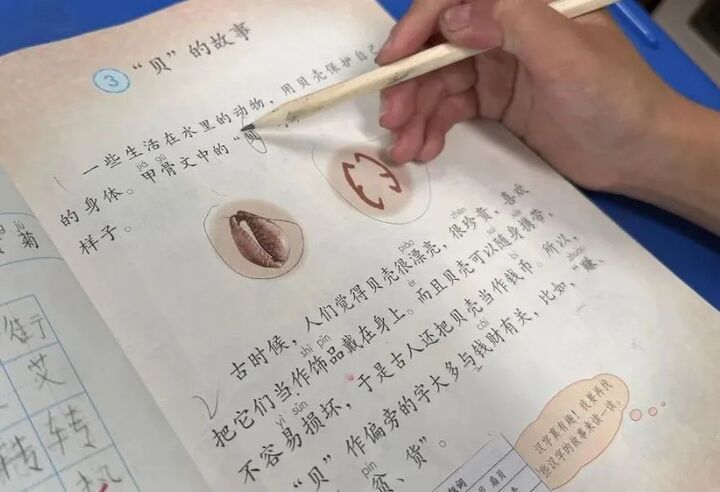 3 “贝”的故事
一些生活在水里的动物，用贝壳保护自己
jiǎ gǔ
的身体。甲骨文中的“贝
样子。
piào zhēn
古时候，人们觉得贝壳很漂亮，很珍贵，喜欢
shì pǐn ér suí xié
把它们当作饰品戴在身上。而且贝壳可以随身携带，
yì sǔn bì zhuàn
不容易损坏，于是古人还把贝壳当作钱币。所以，
cái
“贝”作偏旁的字大多与钱财有关，比如，“赚、
pín
贫、货”。
汉字真有趣！我要再找
些汉字的故事来读一读。
jú
菊
街
艾
转 转